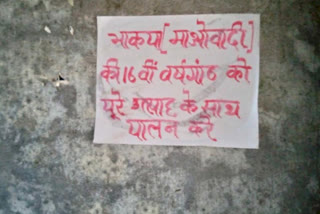 भाकपा [माओवादी]
की 16 वीं वर्षगांठ को
पूरे उत्साह के साथ
पालन करें